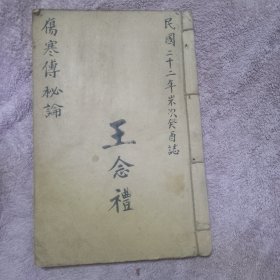 民國二十二年岁次癸酉誌
王念禮
傷寒傅秘論